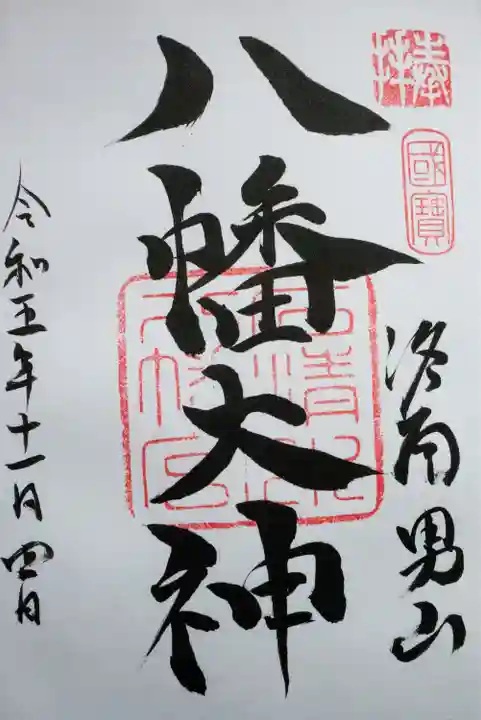 奉拝
國寶
洛南男山
八幡大神
石清水八幡宮
令和五年十一月四日